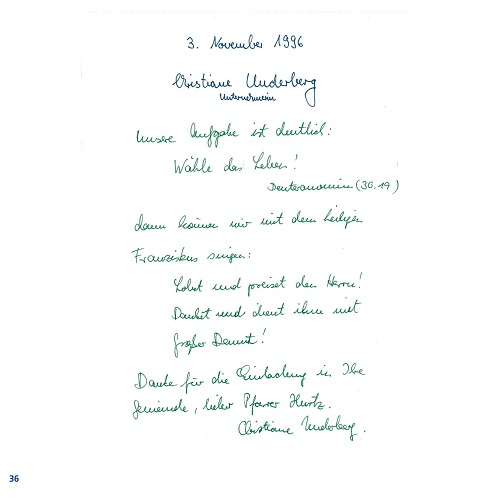 3. November 1996
Christiane Underberg
Unternehmerin
Unsere Aufgabe ist deutlich:
Wähle das Leben!
Deuteronomium (30.19)
dann können wir mit dem heiligen
Franziskus singen:
Lobet und preiset den Herrn!
Danket und dient ihm mit
großer Demut!
Danke für die Einladung in Ihre
Gemeinde, lieber Pfarrer Hurtz.
Christiane Underberg.
36